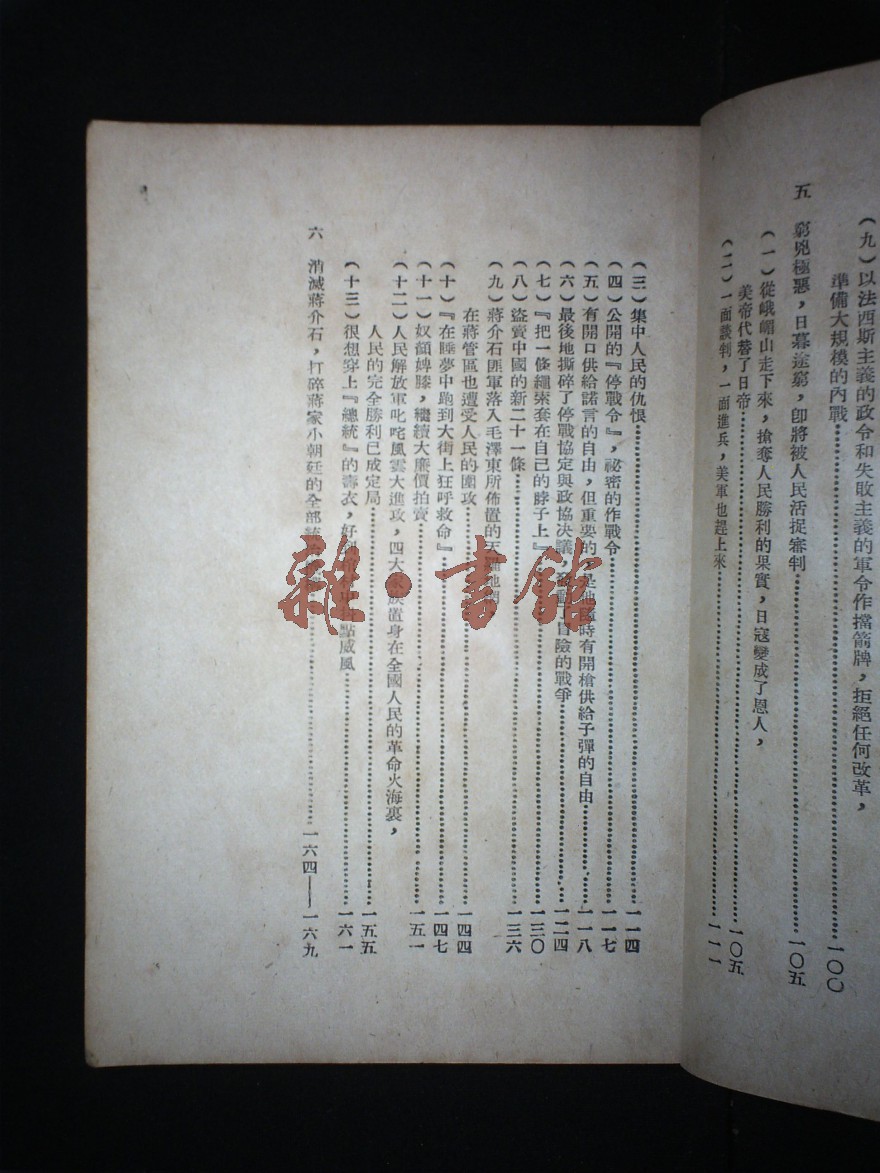 (九)以法西斯主義的政令和失敗主義的軍令作擋箭牌,拒絕任何改革,
準備大規模的內戰……一〇〇
五 窮兇極惡,日暮途窮,卽將被人民活捉審判……一〇五
(一)從峨嵋山走下來,搶奪人民勝利的果實,日寇變成了恩人,
美帝代替了日帝……一〇五
(二)一面談判,一面進兵,美軍也趕上來……一一一
(三)集中人民的仇恨……一一四
(四)公開的『停戰令』,祕密的作戰令……一一七
(五)有開口供給諾言的自由,但重要的是他隨時有開槍供給子彈的自由……一一八
(六)最後地撕碎了停戰協定與政協决議,發動了冒險的戰爭……一二四
(七)『把一條繩索套在自己的脖子上』……一三〇
(八)盜賣中國的新二十一條……一三六
(九)蔣介石匪軍落入毛澤東所佈置的天
在蔣管區也遭受人民的圍攻……一四四
(十)『在睡夢中跑到大街上狂呼救命』……一四七
(十一)奴顏婢膝,繼續大廉價拍賣……一五一
(十二)人民解放軍叱咤風雲大進攻,四大家族置身在全國人民的革命火海裏,
人民的完全勝利已成定局……一五五
(十三)很想穿上『總統』的壽衣,好 點威風……一六一
六 消滅蔣介石,打碎蔣家小朝廷的全部 ……一六四——一六九
雜·書館